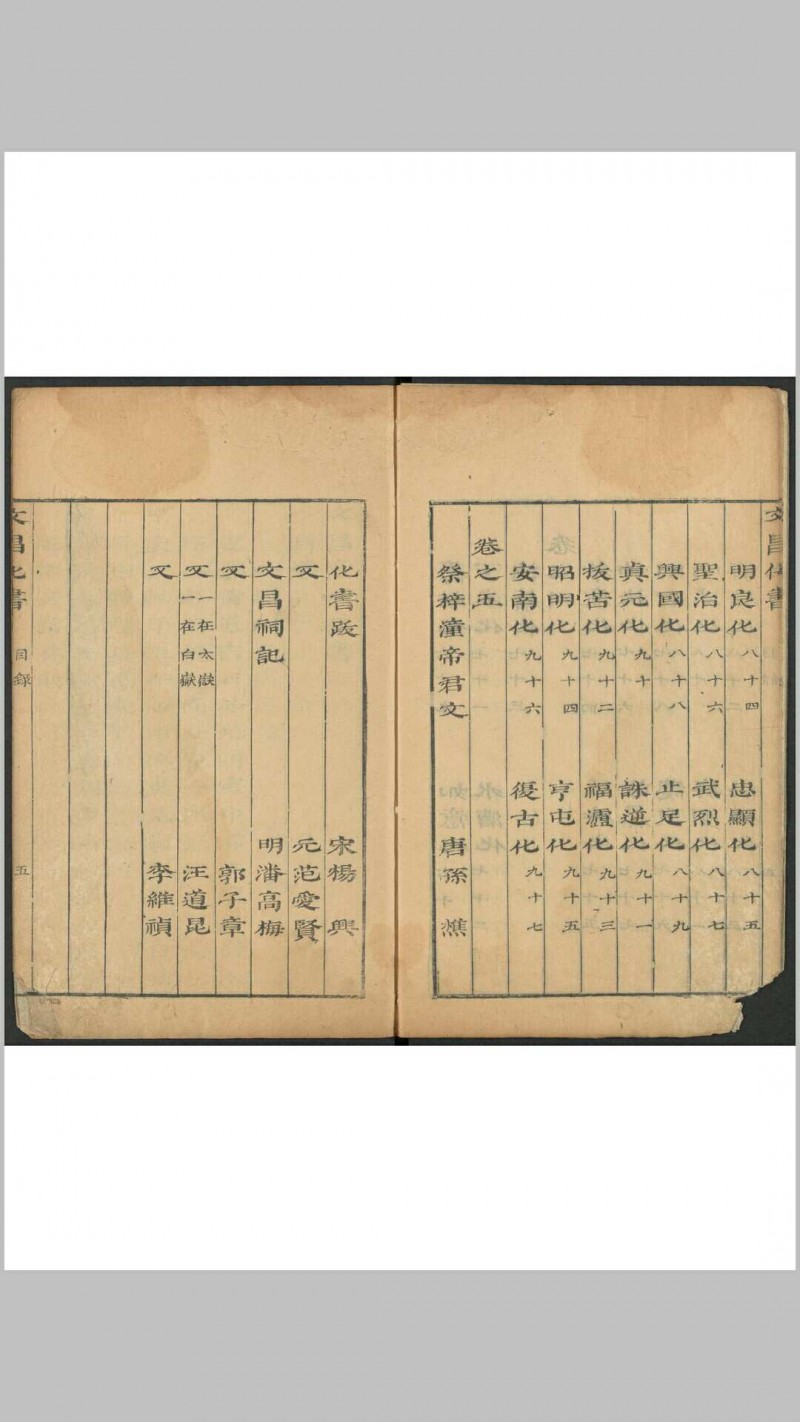 文昌化書
明良化八十四 忠顯化八十五
聖治化八十六 武烈化八十七
興國化八十八 止足化八十九
真元化九十 誅逆化九十一
拔苦化九十二 福瀘化九十三
昭明化九十四 亨屯化九十五
安南化九十六 復古化九十七
卷之五
祭梓潼帝君文 唐孫樵
化書跋 宋楊興
又 元范愛賢
文昌祠記 明潘高梅
又 郭子章
又一在太嶽一在白嶽 汪道昆
又 李維禎
文昌化書 目錄 五